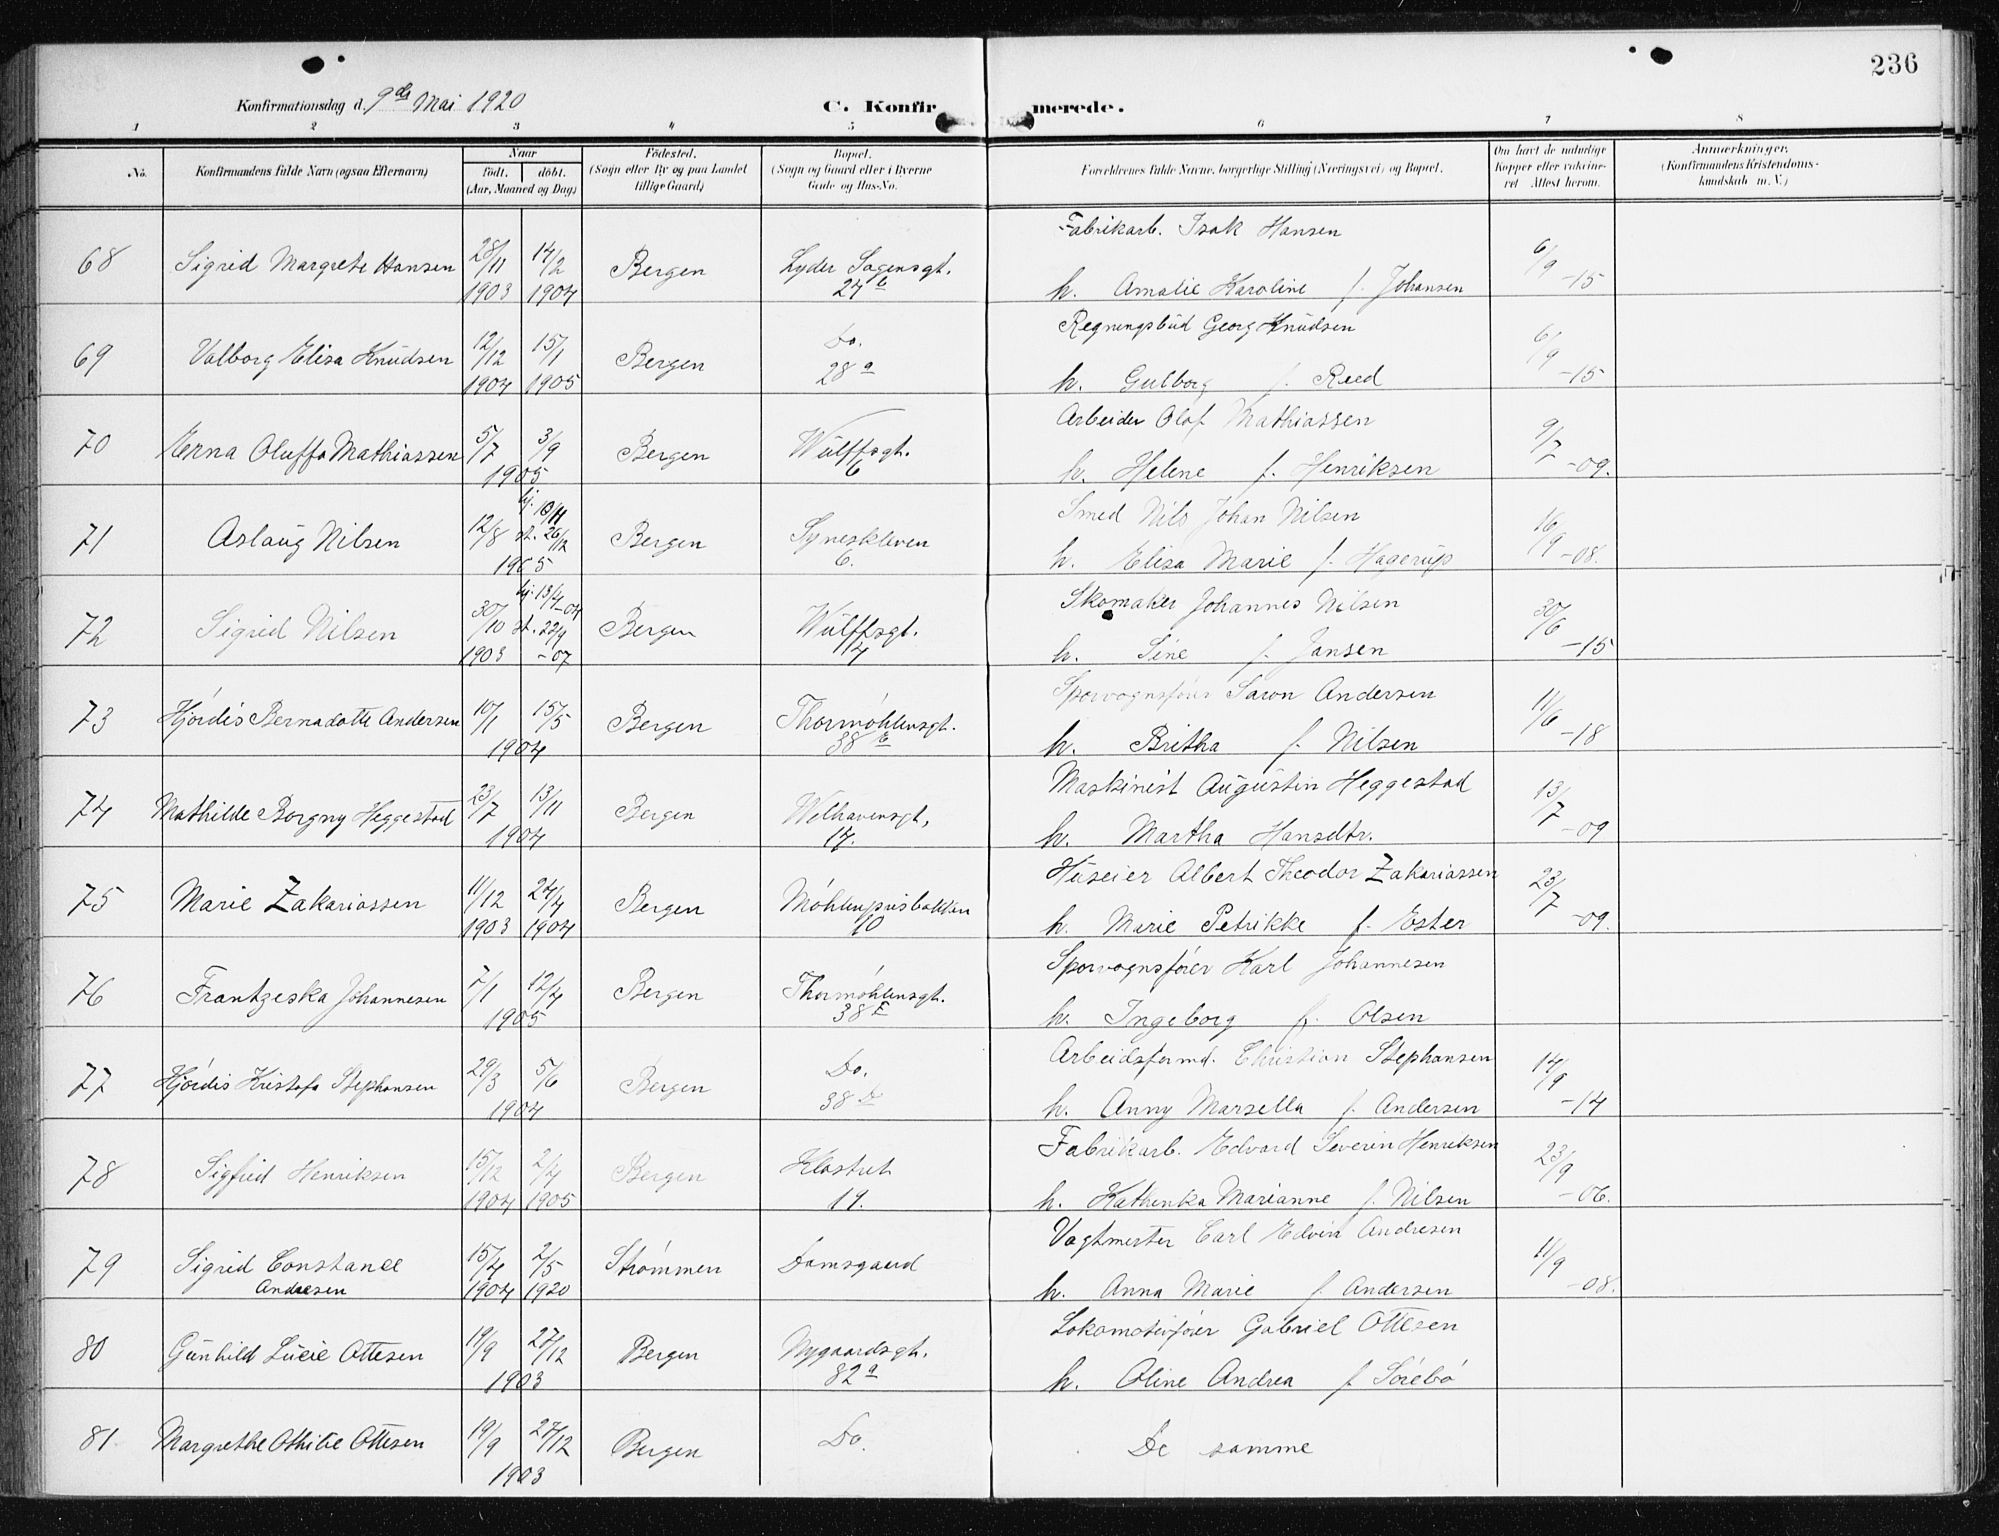 236
Konfirmationsdag d. 9de Mai 1920
C. Konfirmerede.
1 2 3 4 5 6 7 8
No.
Konfirmandens fulde Navn (ogsaa Efternavn)
Naar
født. døbt.
(Aar, Maaned og Dag)
Fødested.
(Sogn eller By og paa Landet
tillige Gaard)
Bopæl.
(Sogn og Gaard eller i Byerne
Gade og Hus-No.
Forældrenes fulde Navne, borgerlige Stilling (Næringsvei) og Bopæl.
Om havt de naturlige
Kopper eller vaccine-
ret Attest herom.
Anmærkninger.
(Konfirmandens Kristendoms-
kundskab m. V.)
68 Sigrid Margrete Hansen 28/11 1903 14/2 1904 Bergen Lyder Sagensgt. 24 b
Fabrikarb. Isak Hansen
h. Amalie Karoline f. Johansen 6/9 -15
69 Valborg Elisa Knudsen 12/12 1904 15/1 1905 Bergen Do. 28 a
Regningsbud Georg Knudsen
h. Gulborg f. Reed 6/9 -15
70 Erna Oluffa Mathiassen 5/7 3/9 1905 Bergen Wulffsgt. 6
Arbeider Olaf Mathiassen
h. Helene f. Henriksen 9/7 -09.
71 Aslaug Nilsen 12/8 hj. 13/11 st. 26/12 1905 Bergen Syneskleven 6.
Smed Nils Johan Nilsen
h. Elisa Marie f. Hagerup 16/9 -08.
72 Sigrid Nilsen 30/10 1903 hj. 13/4 -04 st. 22/9 -07 Bergen Wulffsgt. 14
Skomaker Johannes Nilsen
h. Sine f. Jansen 30/6 -15
73 Hjördis Bernadotte Andersen 10/1 15/5 1904 Bergen Thormöhlensgt. 38 E
Sporvognsfører Saron Andersen
h. Britha f. Nilsen 11/6 -18
74 Mathilde Borgny Heggestad 23/7 13/11 1904 Bergen Welhavensgt. 17.
Maskinist Augustin Heggestad
h. Martha Hansdtr. 13/7 -09
75 Marie Zakariassen 11/12 1903 24/4 1904 Bergen Möhlenprisbakken 10
Huseier Albert Theodor Zakariassen
h. Marie Petrikke f. Ester 23/7 -09.
76 Frantzeska Johannesen 7/1 12/4 1905 Bergen Thormöhlensgt. 38 E
Sporvognsfører Karl Johannesen
h. Ingeborg f. Olsen
77 Hjördis Kristofa Stephansen 29/3 5/6 1904 Bergen Do. 38
Arbeidsformd. Christian Stephansen
h. Anny Marsella f. Andersen 14/9 -14
78 Sigfrid Henriksen 15/12 1904 2/4 1905 Bergen Klostret 19.
Fabrikarb. Edvard Severin Henriksen
h. Kathinka Marianne f. Nilsen 23/9 -06.
79 Sigrid Constance Andresen 15/4 1904 2/5 1920 Strømmen Damsgaard
Vagtmester Carl Edvin Andresen
h. Anna Marie f. Andersen 11/9 -08.
80 Gunhild Lucie Ottesen 19/9 27/12 1903 Bergen Nygaardsgt. 82 a
Lokomotivfører Gabriel Ottesen
h. Oline Andrea f. Sörebö
81. Margrethe Othilie Ottesen 19/9 27/12 1903 Bergen Do.
De samme